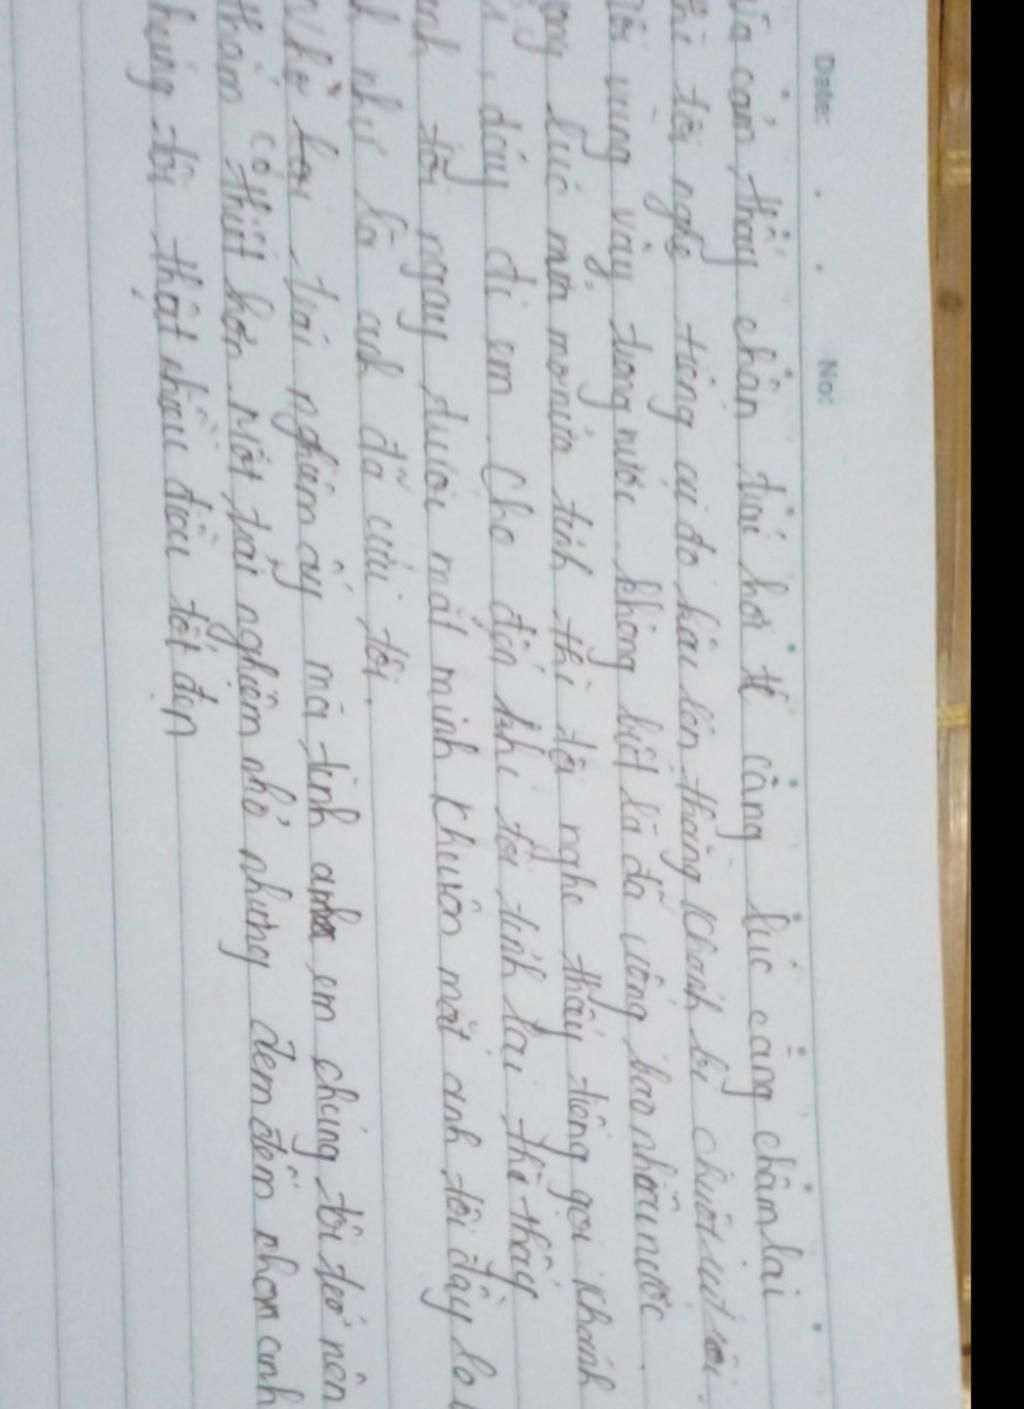 Date: No:
cảm thấy chân trái hơi tê càng lúc càng chậm lại
thì tôi nghe tiếng ai đó kêu lên thằng Khánh bị chuột rút rồi.
Tôi vùng vẫy trong nước không biết là đã uống bao nhiêu nước.
lúc mơ mơ nửa tỉnh thì tôi nghe thấy tiếng gọi Khánh
, dậy đi em. Cho đến khi tôi tỉnh lại thì thấy
tôi ngay trước mắt mình khuôn mặt anh tôi đầy lo
như là anh đã cứu tôi.
trải nghiệm ấy mà tình anh em chúng tôi trở nên
thắm thiết hơn. Một trải nghiệm nhỏ nhưng đem đến cho anh
chúng tôi thật nhiều điều tốt đẹp